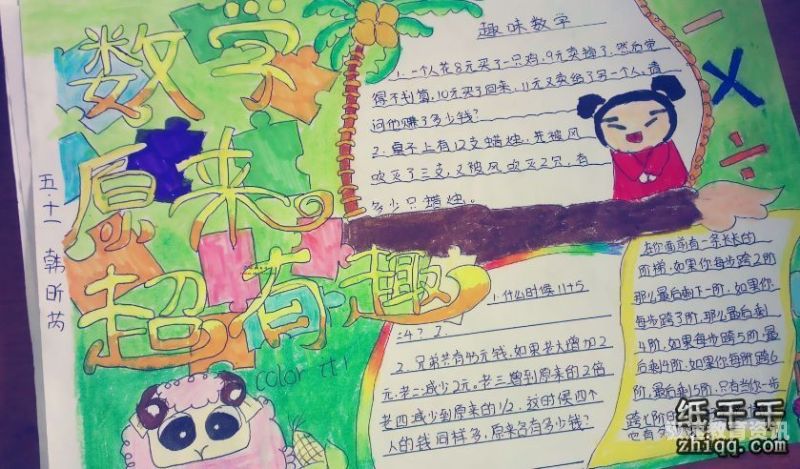 数学
原来。
超有趣
五·十一
韩昕芮
color it!
趣味数学
1.一个人花8元买了一只鸡,9元卖掉了,然后觉
得不划算,10元买了回来,11元又卖给了另一个人,请
问他赚了多少钱?
2.桌子上有12支蜡烛,先被风
吹灭了三支,又被风吹灭2只,有
多少只蜡烛。
1.什么时候11+5
=4?
2.兄弟共有45元钱,如果老大增加2
元,老二减少2元,老三增到原来的2倍
老四减少到原来的1/2,这时候四个
人的钱同样多,原来各有多少钱?
在你面前有一条长长的
阶梯,如果你每步跨2阶
那么最后剩下一阶,如果你
每步跨3阶,那么最后剩
4阶,如果每步跨5阶,最
后剩4阶,如果你每阶跨6
阶,最后剩5阶,只有当你一步
跨7阶时
纸千千
教育资讯
zhiqq.com